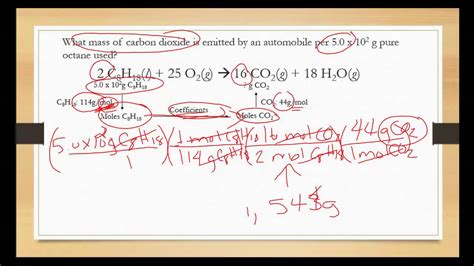 What mass of carbon dioxide is emitted by an automobile per 5.0 x 10² g pure
octane used?
2 C₈H₁₈(l) + 25 O₂(g) → 16 CO₂(g) + 18 H₂O(g)
5.0 x 10² g C₈H₁₈
g CO₂
C₈H₁₈: 114g/mol
CO₂: 44g/mol
Moles C₈H₁₈
Coefficients
Moles CO₂
(5.0x10²g C₈H₁₈) (1 mol C₈H₁₈) (16 mol CO₂) (44 g CO₂)
1 114g C₈H₁₈ 2 mol C₈H₁₈ 1 mol CO₂
1, 543g